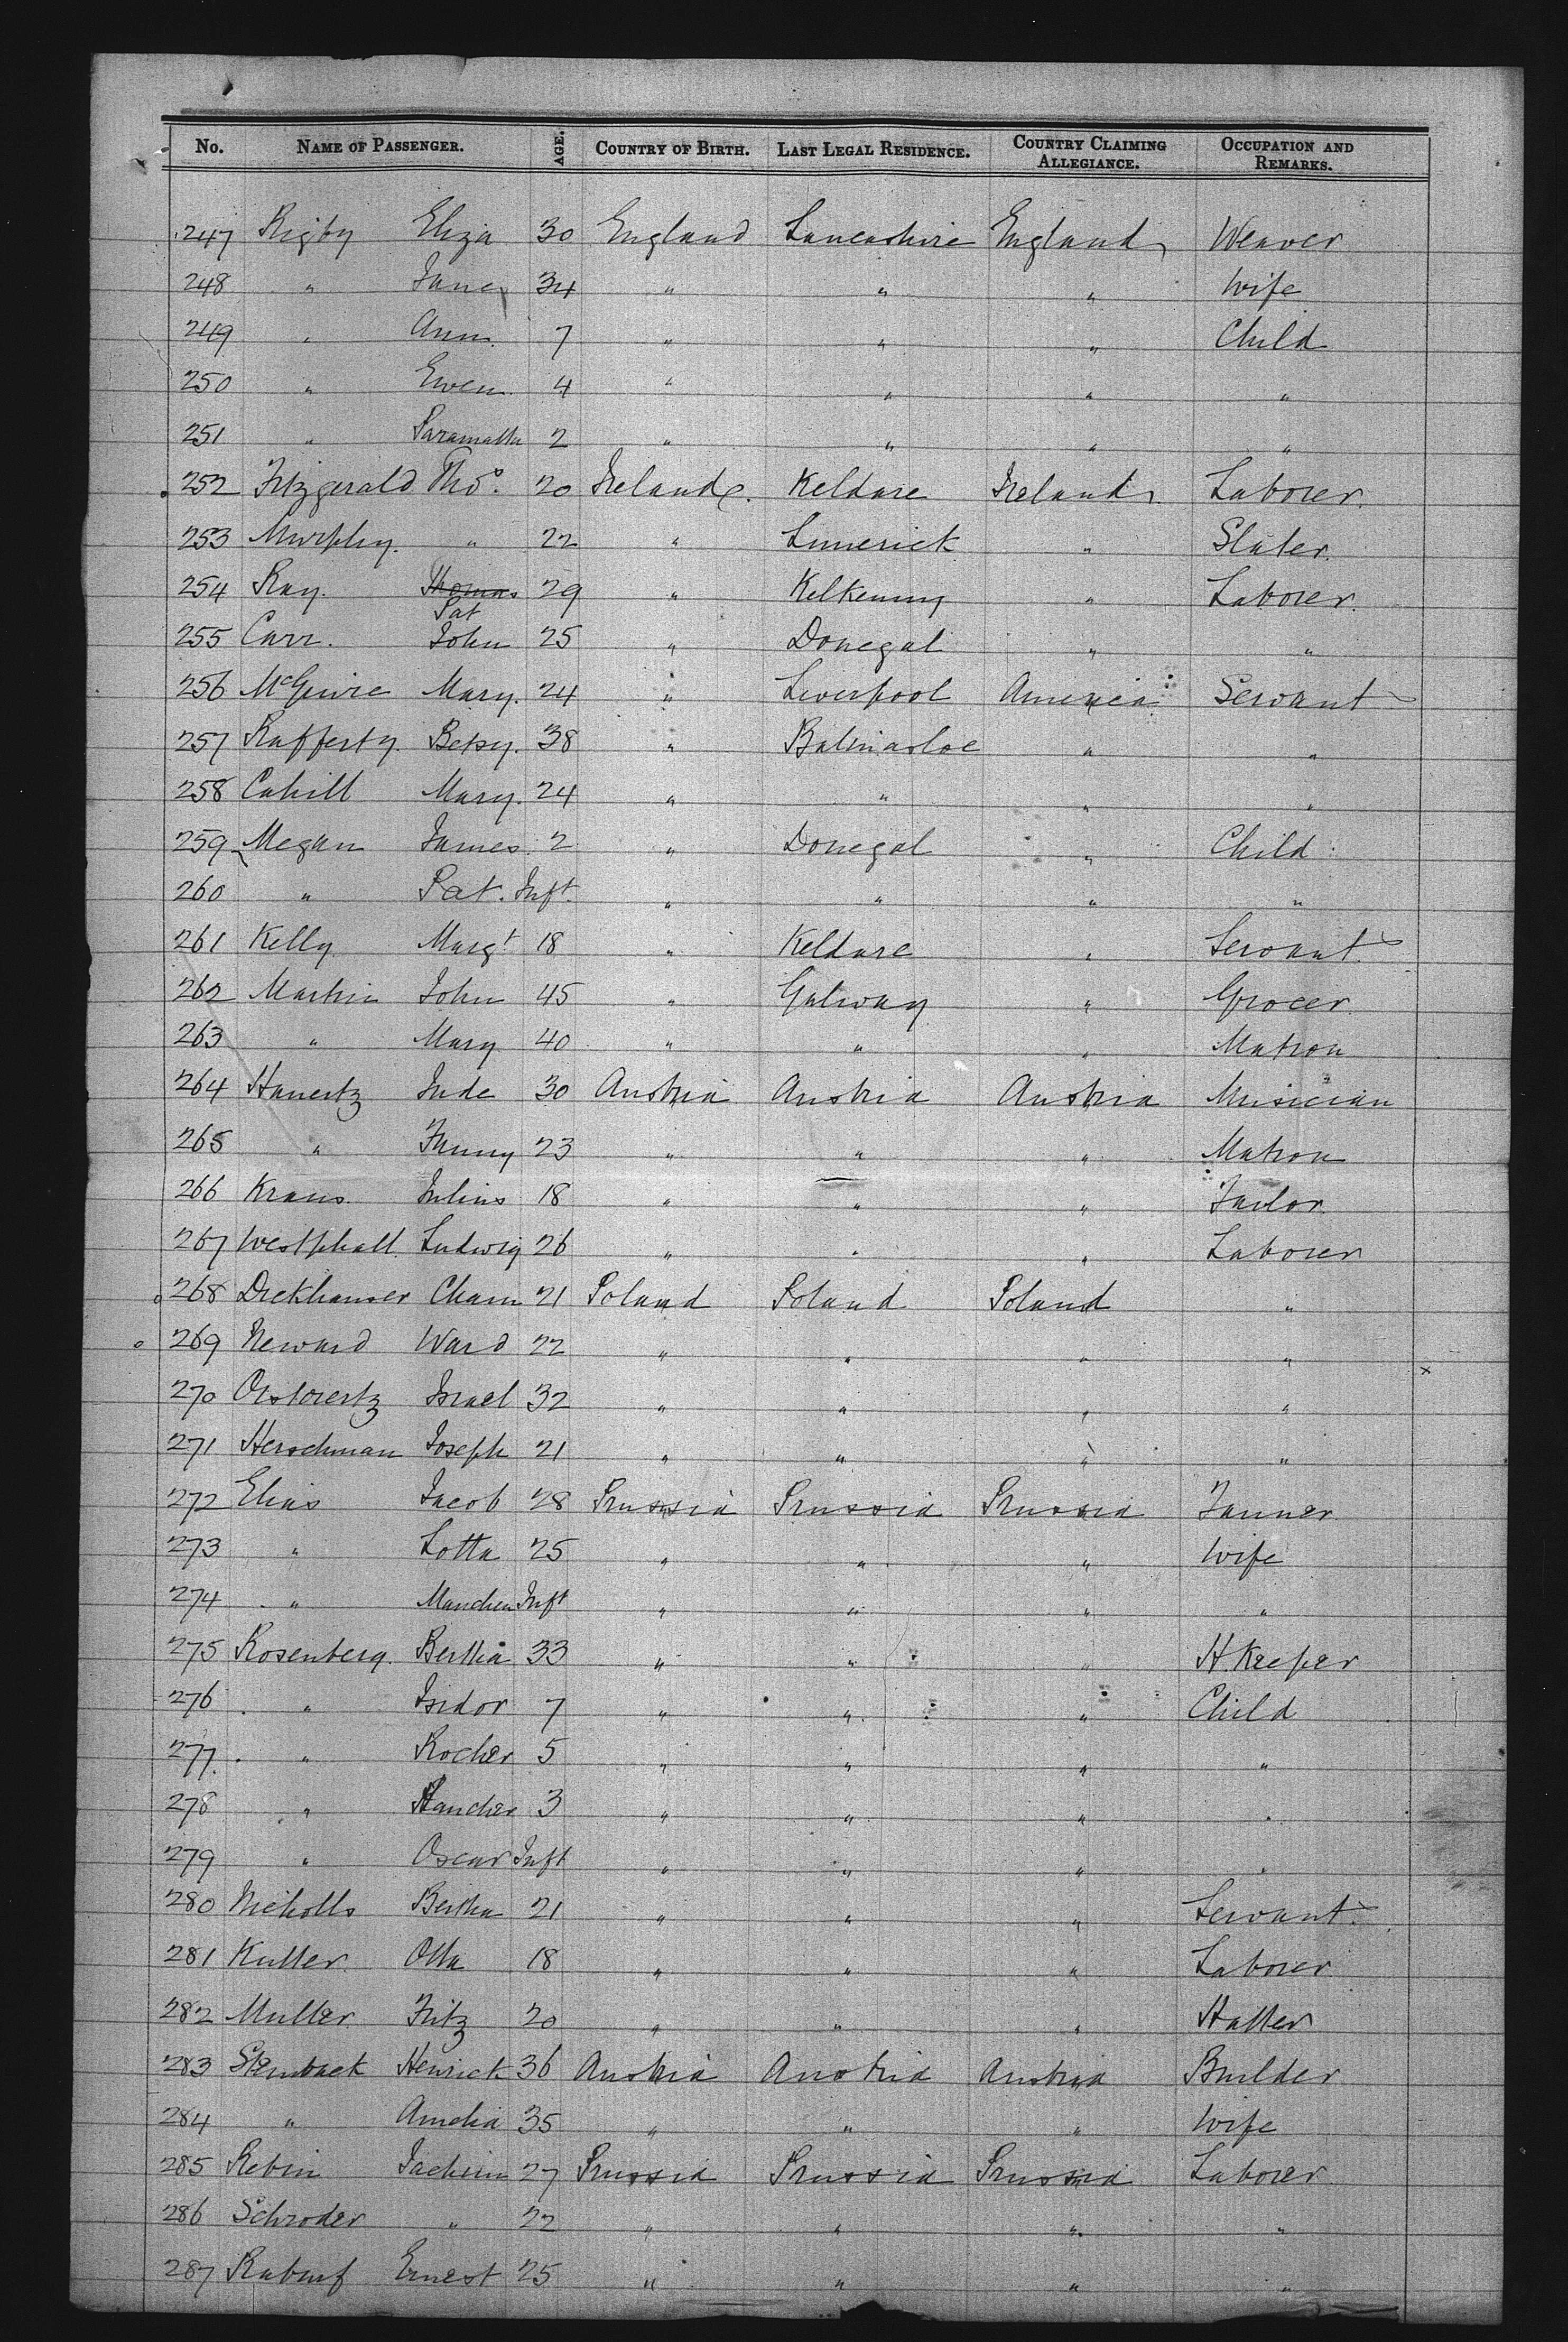 No. NAME OF PASSENGER. AGE. COUNTRY OF BIRTH. LAST LEGAL RESIDENCE. COUNTRY CLAIMING ALLEGIANCE. OCCUPATION AND REMARKS.
247 Rigby Eliza 30 England Lancashire England Weaver
248 " Jane 34 " " " Wife
249 " Ann 7 " " " Child
250 " Ewen 4 " " " "
251 " Paramatta 2 " " " "
252 Fitzgerald Thos. 20 Ireland Keldare Ireland Laborer
253 Murphy. " 22 " Limerick " Slater
254 Ray. Thomas Pat 29 " Kelkenny " Laborer
255 Carr. John 25 " Donegal " "
256 McGuire Mary. 24 " Liverpool America Servant
257 Rafferty. Betsy. 38 " Balinasloe " "
258 Cahill Mary. 24 " " " "
259 Megan James 2 " Donegal " Child
260 " Pat. Inft. " " " "
261 Kelly Margt 18 " Keldare " Servant
262 Martin John 45 " Galway " Grocer
263 " Mary 40 " " " Matron
264 Hanertz Jude 30 Austria Austria Austria Musician
265 " Fanny 23 " " " Matron
266 Kraus Julius 18 " " " Tailor
267 Westphall Ludwig 26 " " " Laborer
268 Dickhauser Cham 21 Poland Poland Poland "
269 Neward Ward 22 " " " "
270 Israel 32 " " " "
271 Herschman Joseph 21 " " " "
272 Elias Jacob 28 Prussia Prussia Prussia Tanner
273 " Lotta 25 " " " Wife
274 " Manchen Inft " " " "
275 Rosenberg. Bertha 33 " " " H. Keeper
276 " Isidor 7 " " " Child
277 " Rocher 5 " " " "
278 " Hancher 3 " " " "
279 " Oscar Inft " " " "
280 Nicholls Bertha 21 " " " Servant
281 Kutter Otta 18 " " " Laborer
282 Muller Fritz 20 " " " Hatter
283 Steinback Henrick 36 Austria Austria Austria Builder
284 " Amelia 35 " " " Wife
285 Rebin Jachim 27 Prussia Prussia Prussia Laborer
286 Schroder " 22 " " " "
287 Ernest 25 " " " "